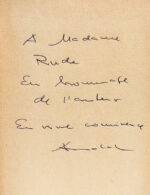 A Madame
Rude
En hommage
de l'auteur
En vive